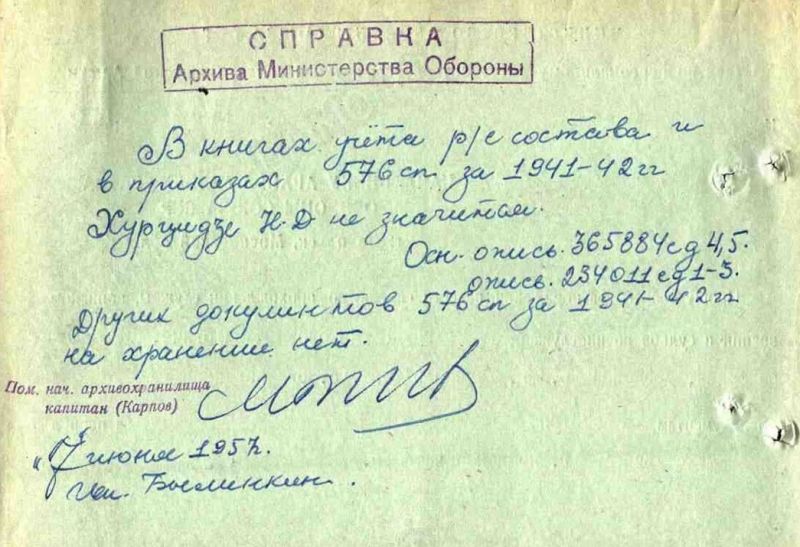 СПРАВКА
Архива Министерства Обороны
В книгах учёта р/с состава и
в приказах 576 сп за 1941-42 гг
Хурцидзе Н.Д не значится.
Осн. опись. 365884 ед 4,5.
опись. 234011 ед 1-3.
Других документов 576 сп за 1941-42 гг
на хранение нет.
Пом. нач. архивохранилища
капитан (Карпов)
"7" июня 1957.
Исп.